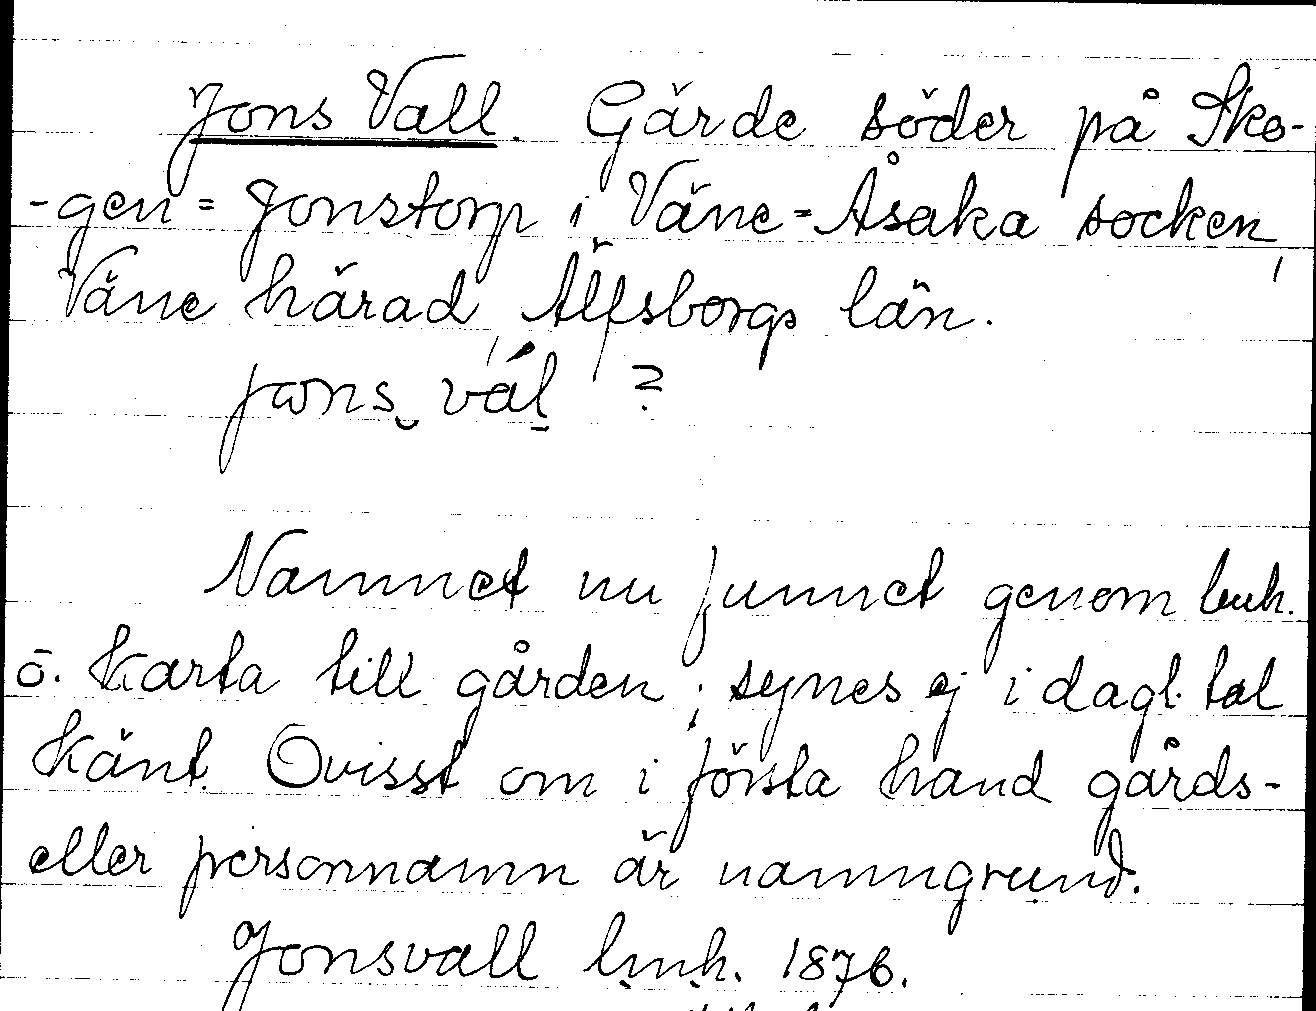 Jons Vall. Gärde söder på Sko-
-gen = Jonstorp i Väne-Åsaka socken,
Väne härad, Älfsborgs län.
jons val ?
Namnet nu funnet genom lmh.
o. karta till gården; synes ej i dagl. tal
känt. Ovisst om i första hand gårds-
eller personnamn är namngrund.
Jonsvall lmh. 1876.